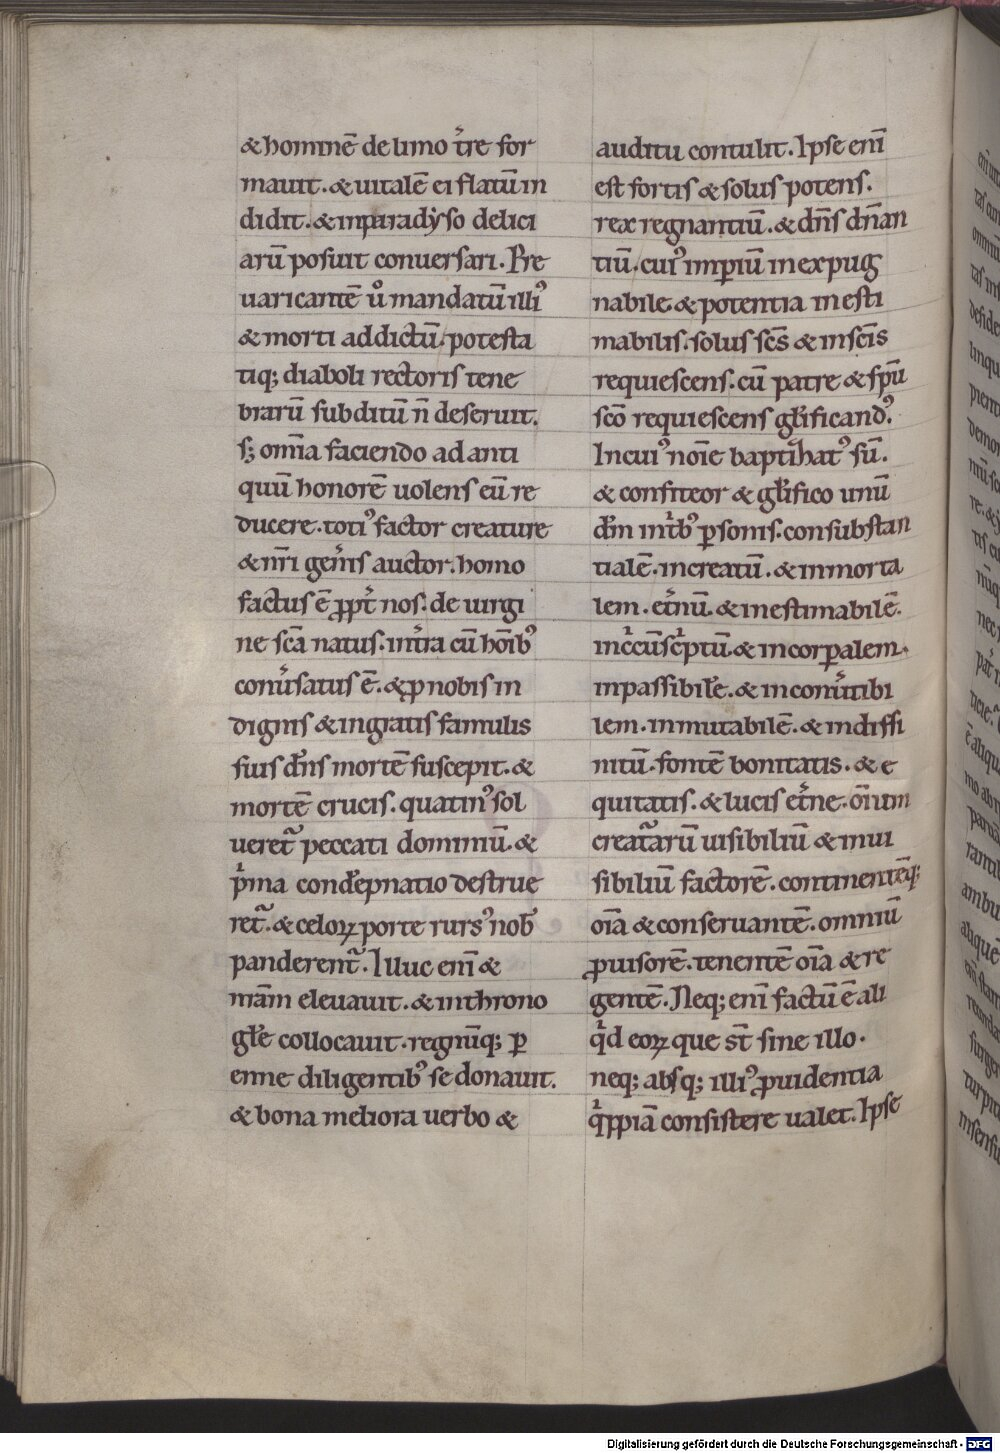 & hominē de limo t̄re for
mauit. & uitalē ei flatū in
didit. & in paradẏso delici
arū posuit conuersari. Pre
uaricantē u̾o mandatū illi᾽
& morti addictū. potesta
tiq; diaboli rectoris tene
brarū subditū n̄ deseruit.
s; om̄ia faciendo ad anti
quū honorē uolens eū re
ducere. toti᾽ factor creature
& nr̄i gen̾is auctor. homo
factus ē ꝓpt̾ nos. de uirgi
ne sc̄a natus. int̾ra cū hōib᾽
conu̾satus ē. & ꝓ nobis in
dignis & ingratis famulis
suis dn̄s mortē suscepit. &
mortē crucis. quatin᾽ sol
ueret᷑ peccati dominiū. &
p̾ma condēpnatio destrue
ret᷑. & celoꝝ porte rurs᾽ nob̄
panderent᷑. Illuc eni̅ &
mām eleuauit. & in throno
głe collocauit. regnūq; ꝑ
enne diligentib᾽ se donauit.
& bona meliora uerbo &
auditu contulit. Ipse eni̅
est fortis & solus potens.
rex regnantiū. & dn̄s dn̄an
tiū. cui᾽ imꝑiū inexpug
nabile & potentia inesti
mabilis. solus sc̄s & in sc̄is
requiescens. cū patre & spū
scō requiescens gl̄ificand᾽.
In cui᾽ noīe baptiz̄hat᾽ sū.
& confiteor & gl̄ifico unū
dm̄ in t̾b᾽ ꝑsonis. consubstan
tialē. increatū. & inmorta
lem. et̾nū. & inestimabilē.
inc̾cūsc̾ptū & incorꝑalem.
inpassibilē. & inconu̾tibi
lem. inmutabilē. & indiffi
nitū. fontē bonitatis. & e
quitatis. & lucis et̾ne. oīum
creat᷑arū uisibiliū & inui
sibiliū factorē. continentēq;
oīa & conseruantē. omniū
ꝓuisorē. tenentē oīa & re
gentē. Neq; eni̅ factū ē ali
q̾d eoꝝ que st̄ sine illo.
neq; absq; illi᾽ ꝓuidentia
q̾ppiā consistere ualet. Ipse
Digitalisierung gefördert durch die Deutsche Forschungsgemeinschaft - DFG